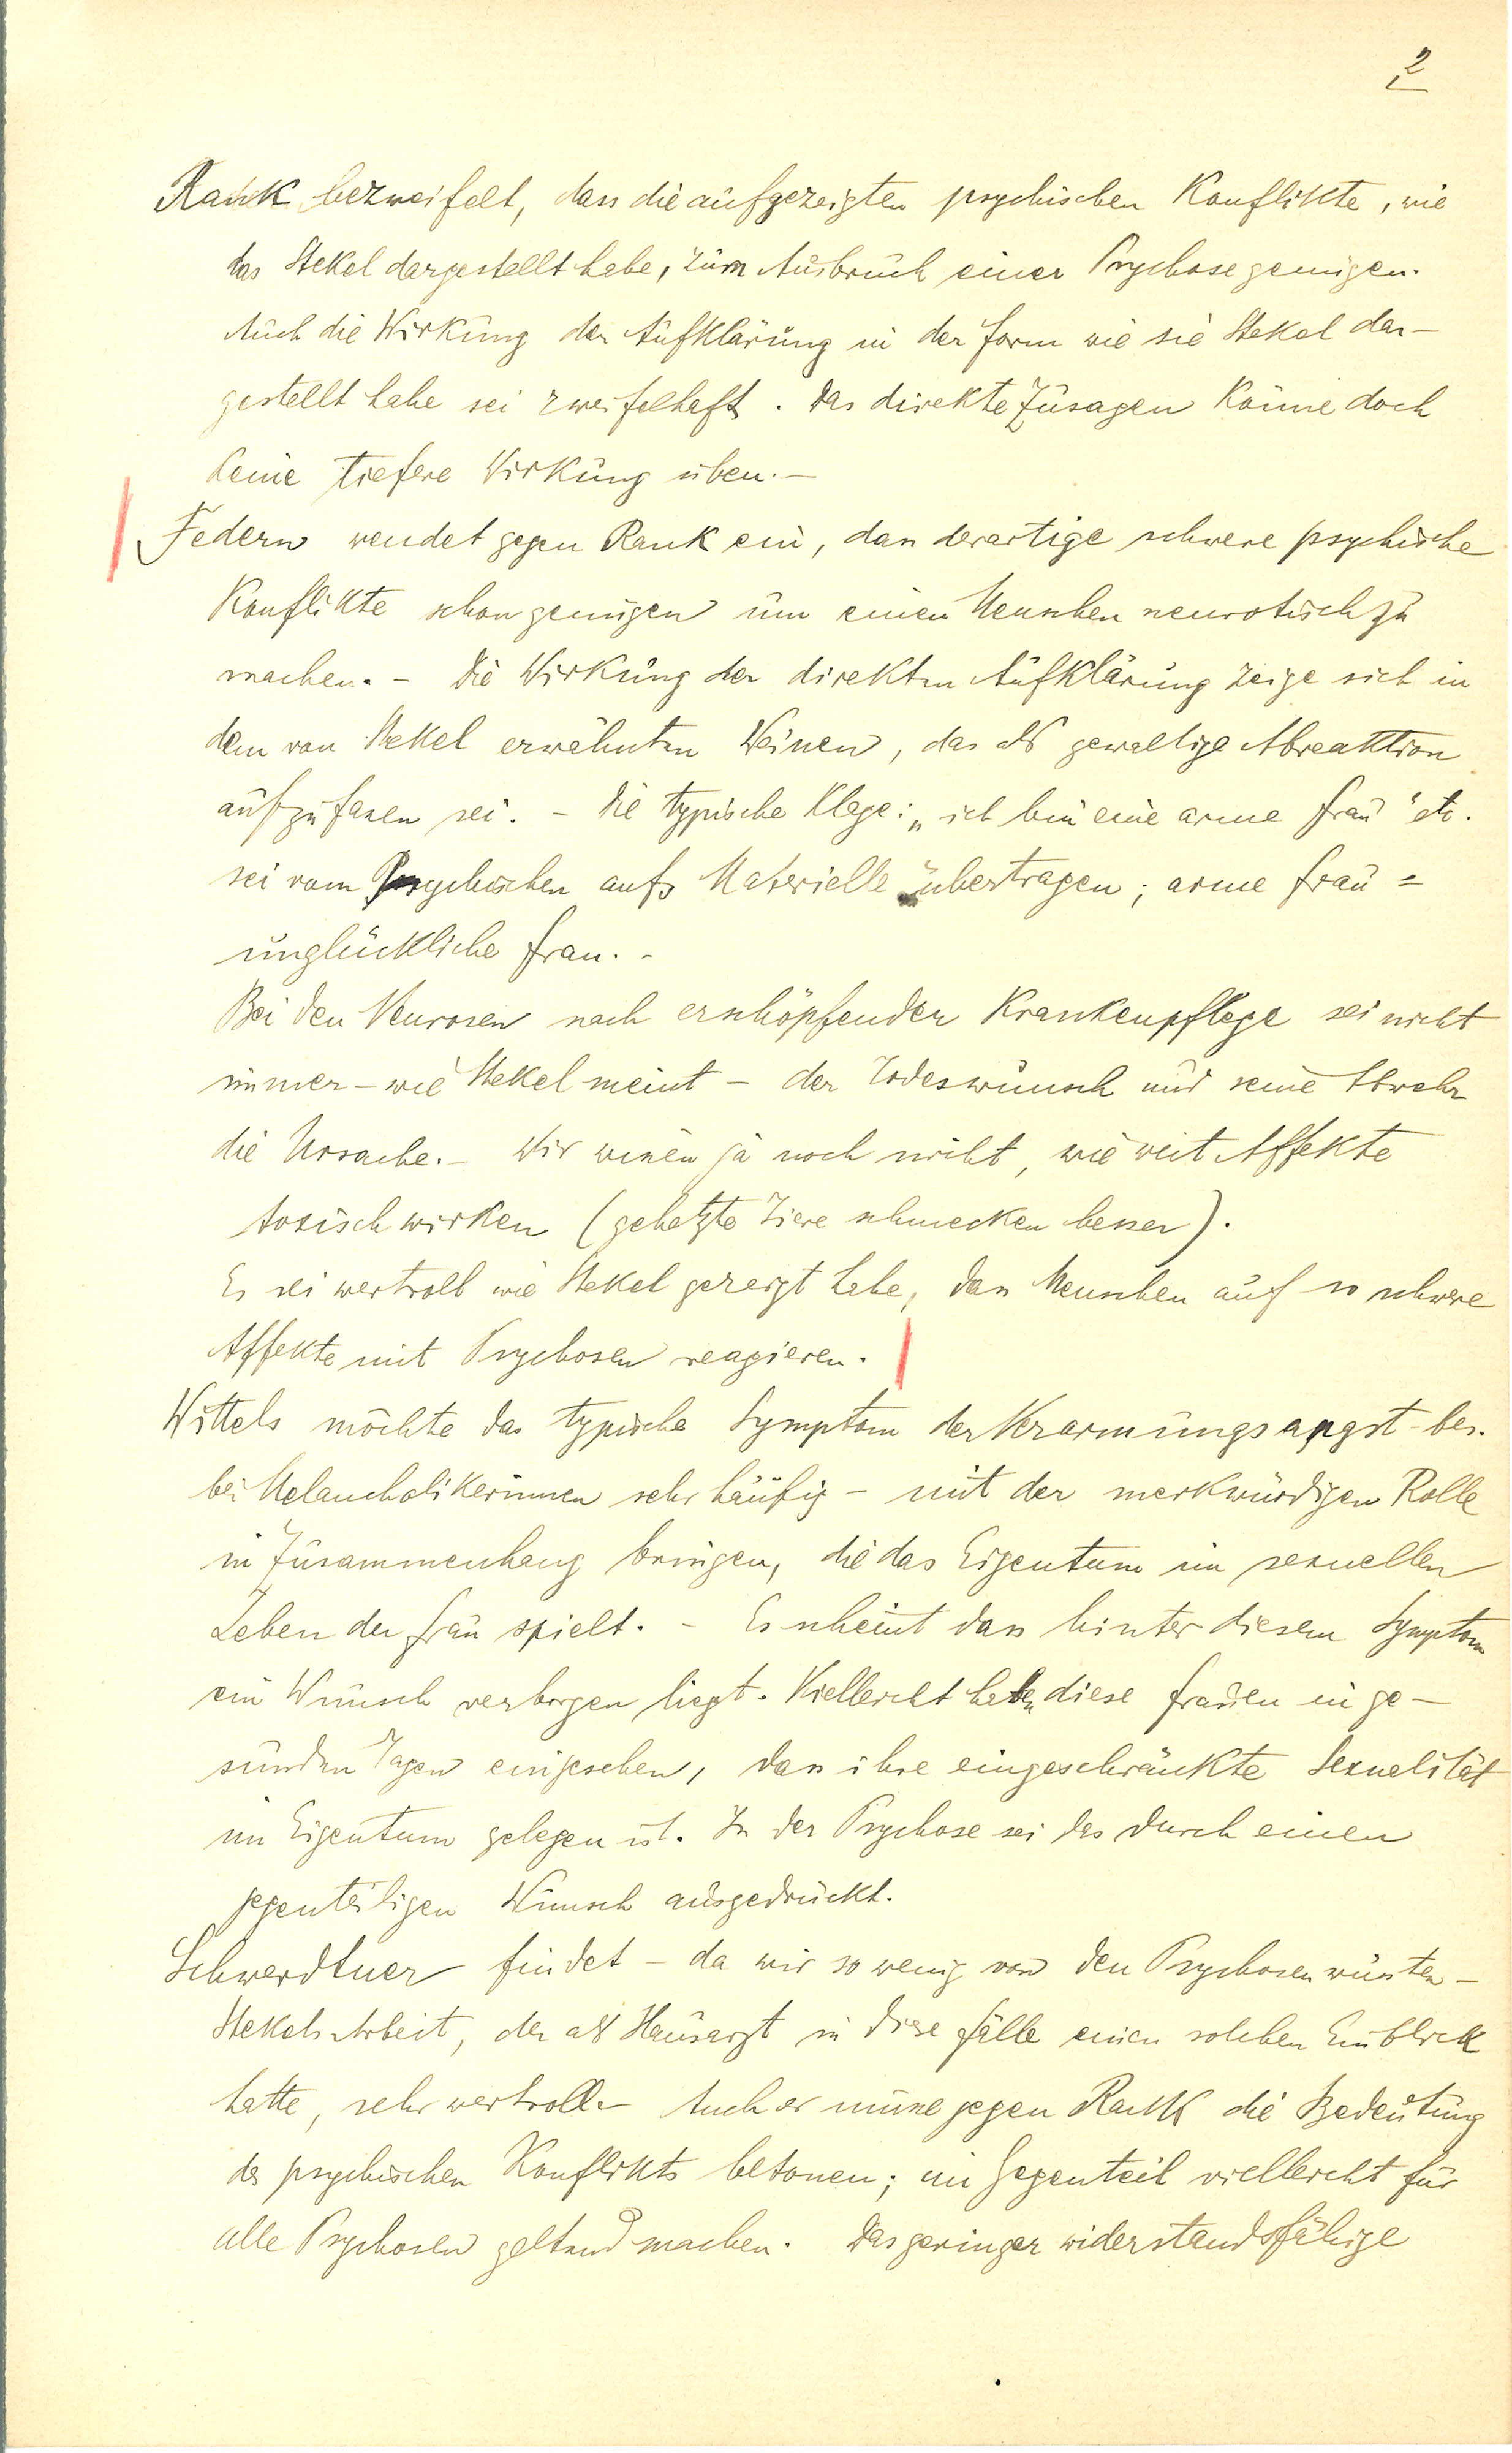 2
Rank bezweifelt, dass die aufgezeigten psychischen Konflikte, wie
das Stekel dargestellt habe, zum Ausbruch einer Psychose genügen.
Auch die Wirkung der Aufklärung in der Form wie sie Stekel dar-
gestellt habe sei zweifelhaft. Das direkte Zusagen könne doch
keine tiefere Wirkung üben. –
Federn wendet gegen Rank ein, dass derartige schwere psychische
Konflikte schon genügen um einen Menschen neurotisch zu
machen. – Die Wirkung der direkten Aufklärung zeige sich in
dem von Stekel erwähnten Weinen, das als gewaltige Abreaktion
aufzufassen sei. – Die typische Klage: „ich bin eine arme Frau" etc.
sei vom Psychischen aufs Materielle übertragen; arme Frau =
unglückliche Frau. –
Bei den Neurosen nach erschöpfender Krankenpflege sei nicht
immer – wie Stekel meint – der Todeswunsch und seine Abwehr
die Ursache. – Wir wissen ja noch nicht, wie weit Affekte
toxisch wirken (gehetzte Tiere schmecken besser).
Es sei wertvoll wie Stekel gezeigt habe, dass Menschen auf so schwere
Affekte mit Psychosen reagieren.
Wittels möchte das typische Symptom der Verarmungsangst – bes.
bei Melancholikerinnen sehr häufig – mit der merkwürdigen Rolle
in Zusammenhang bringen, die das Eigentum im sexuellen
Leben der Frau spielt. – Es scheint dass hinter diesem Symptom
ein Wunsch verborgen liegt. Vielleicht haben diese Frauen in ge-
sunden Tagen eingesehen, dass ihre eingeschränkte Sexualität
im Eigentum gelegen ist. In der Psychose sei das durch einen
gegenteiligen Wunsch ausgedrückt.
Schwerdtner findet – da wir so wenig von den Psychosen wüssten –
Stekels Arbeit, der als Hausarzt in diese Fälle einen solchen Einblick
hatte, sehr wertvoll. – Auch er müsse gegen Rank die Bedeutung
des psychischen Konflikts betonen; im Gegenteil vielleicht für
alle Psychosen geltend machen. Das geringer widerstandsfähige